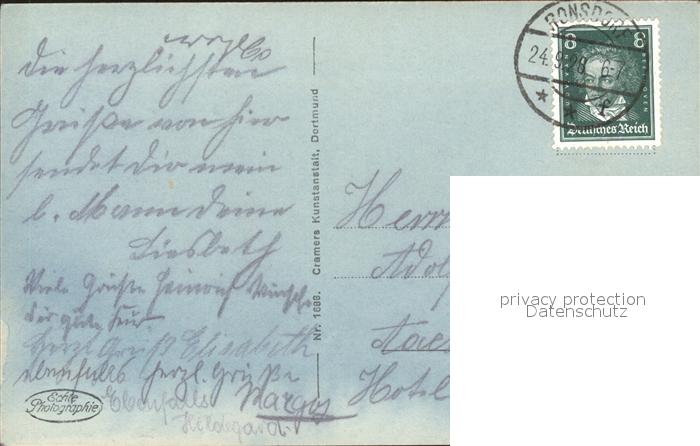 die herzlichsten
Grüße von hier
sendet dir mein
l. Mann deine
Liesbeth
Viele Grüße Heinrich
Herzl Gruß Elisabeth
ebenfalls herzl. Grüße
Margos
Ebenfalls
Hildegard.
Echte
Photographie
Nr. 1688. Cramers Kunstanstalt, Dortmund
RONSDORF
24.9.28. 6-7
8 8
Deutsches Reich
Herrn
Adol
Hotel
privacy protection
Datenschutz